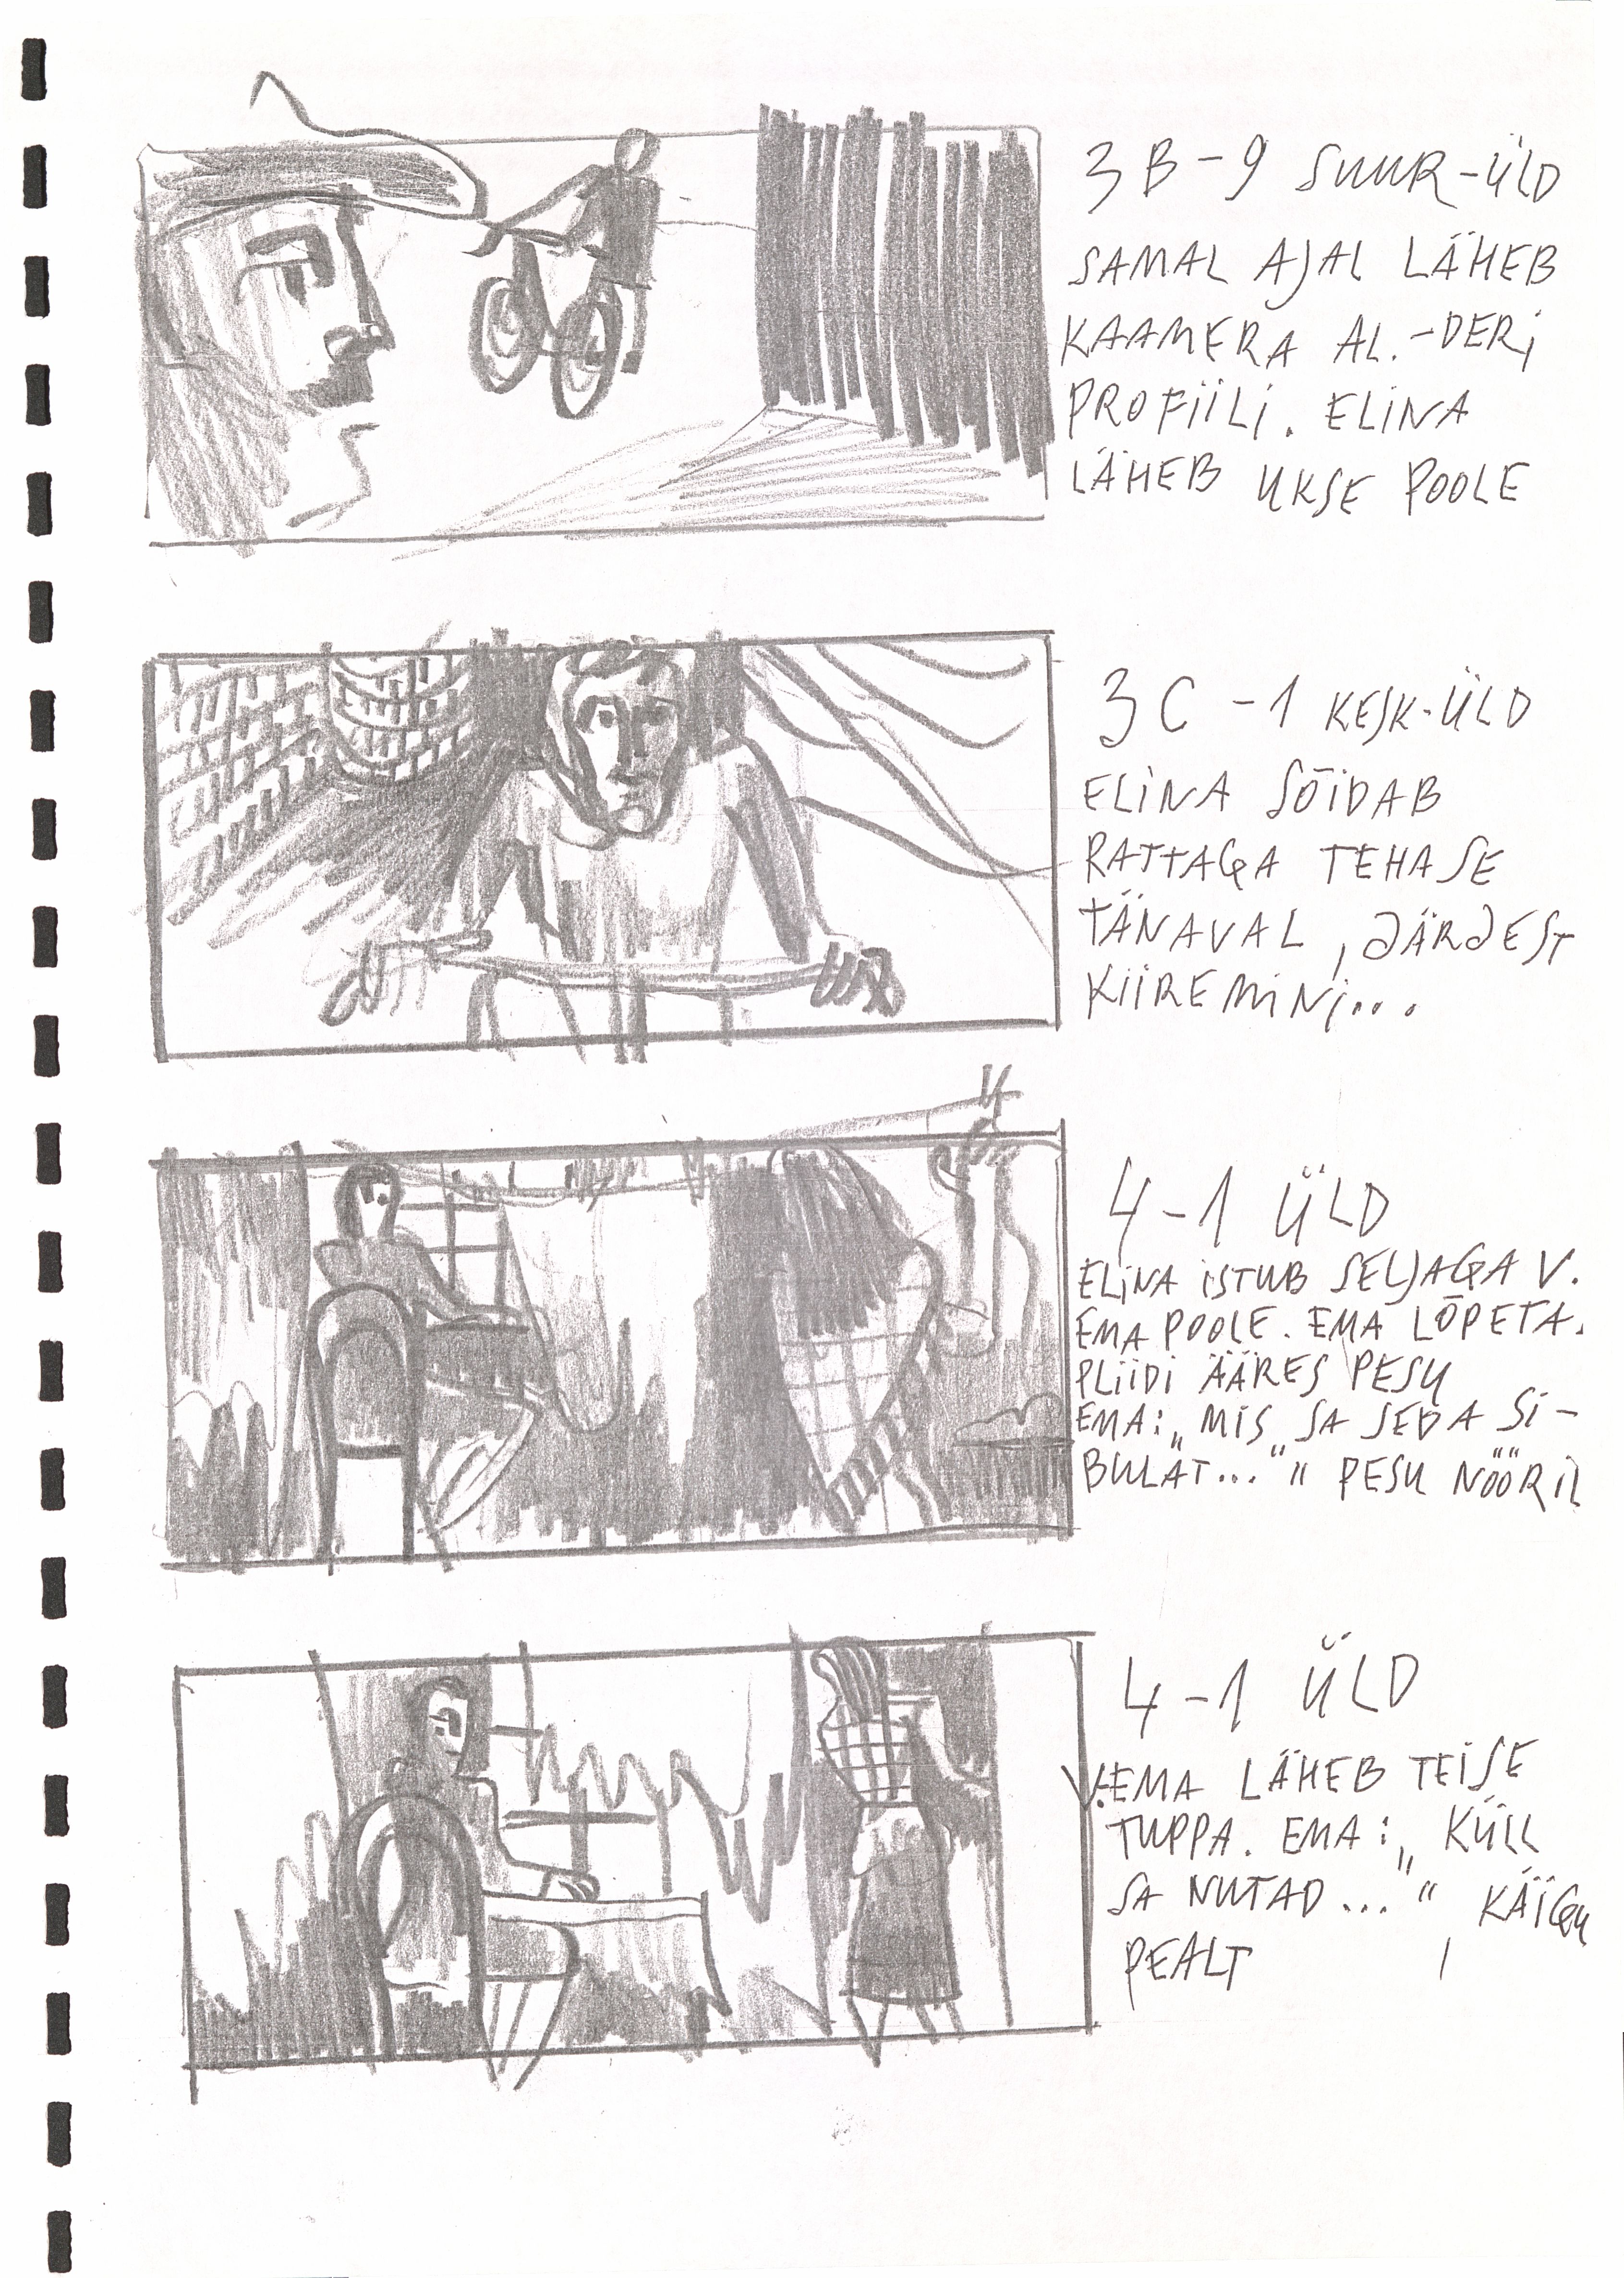 3B-9 SUUR-ÜLD
SAMAL AJAL LÄHEB
KAAMERA AL.-DERI
PROFIILI. ELINA
LÄHEB UKSE POOLE
3C -1 KESK-ÜLD
ELINA SÕIDAB
RATTAGA TEHASE
TÄNAVAL, JÄRJEST
KIIREMINI...
4-1 ÜLD
ELINA ISTUB SELJAGA V.
EMA POOLE. EMA LÕPETA.
PLIIDI ÄÄRES PESU
EMA: „MIS SA SEDA SI-
BULAT..." " PESU NÖÖRIL
4-1 ÜLD
V.EMA LÄHEB TEISE
TUPPA. EMA: „KÜLL
SA NUTAD..." KÄIGU
PEALT